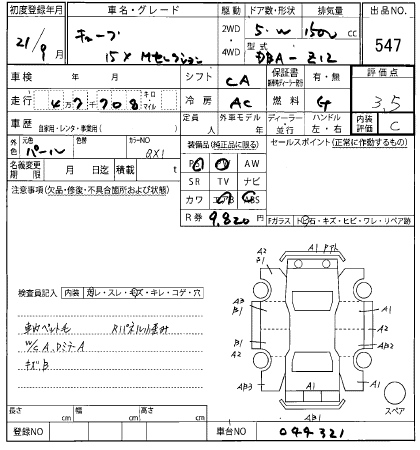 初度登録年月 車名・グレード 駆動 ドア数・形状 排気量 出品NO.
21/9月 キューブ 2WD ・ 4WD 5・W 1500 cc 547
15X Mセレクション 型式 DBA-Z12
車検 年 月 シフト CA 保証書 有・無 評価点
走行 47708 キロ マイル 冷房 AC 燃料 G 3.5
車歴 自家用・レンタ・事業用( ) 定員 人 外車モデル ディーラー・並行 ハンドル 左・右 内装評価 C
外色 元色 パール 色替 カラーNO QX1 装備品(純正品に限る) セールスポイント(正常に作動するもの)
名義変更期限 月 日迄 積載 t PS PW AW
SR TV ナビ
注意事項(欠品・修復・不具合箇所および状態) カワ エアB ABS
R券 9,820 円 Fガラス ト石・キズ・ヒビ・ワレ・リペア跡
検査員記入 内装 ヨレ・スレ・キズ・キレ・コゲ・穴
車内ペット毛 Rパネル小歪み
W/C A、DミラーA
キズB
A1
A2
B1
A1
A3
B1
A1
A2
AB2
AB3
A1
A1
AB1
スペア
長さ cm 幅 cm 高さ cm
登録NO 車台NO 044321